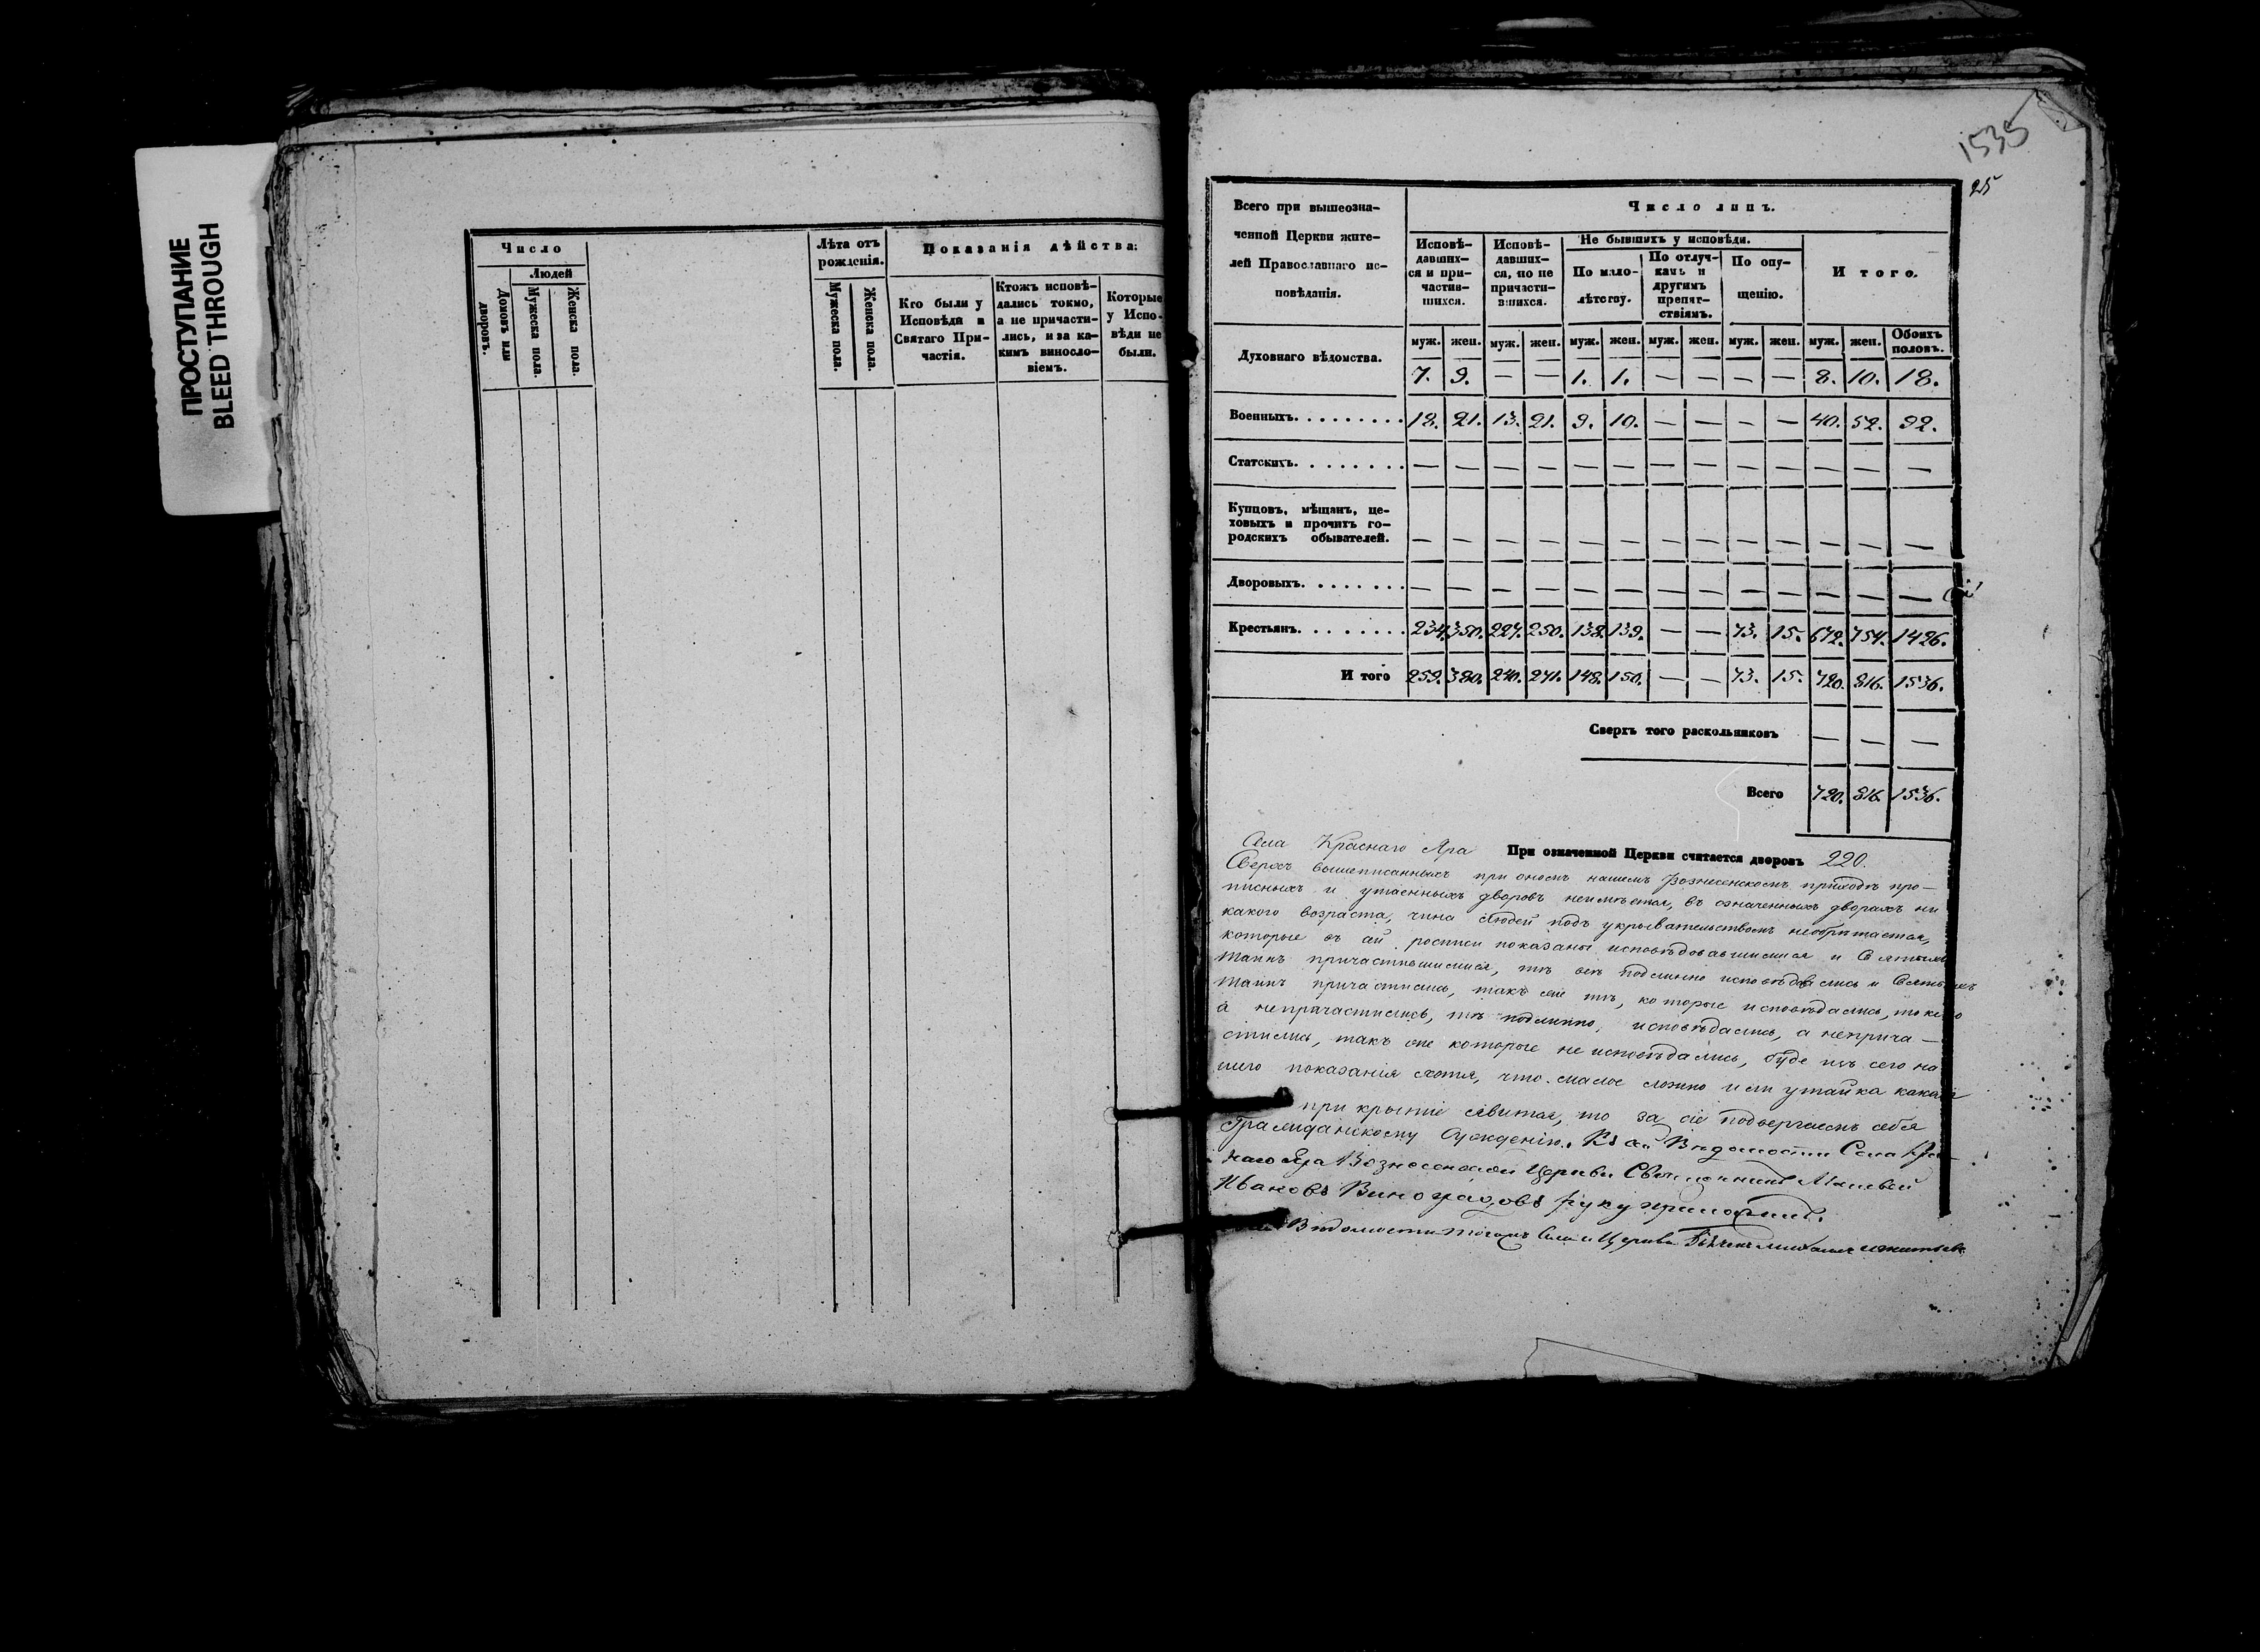 ПРОСТУПАНИЕ
BLEED THROUGH
Число
Людей
Домовъ или дворовъ.
Мужеска пола.
Женска пола.
Лѣта отъ рожденія.
Мужеска пола.
Женска пола.
Показанія дѣйства:
Кто были у
Исповѣди и
Святаго При-
частія.
Ктожъ исповѣ-
дались токмо,
а не причасти-
лись, и за ка-
кимъ винословіемъ.
Которые
у Испо-
вѣди не
были.
1535
25
Всего при вышеозна-
ченной Церкви жите-
лей Православнаго ис-
повѣданія.
Число лицъ.
Исповѣ-
давших-
ся и при-
частив-
шихся.
Исповѣ-
давших-
ся, но не
причасти-
вшихся.
Не бывшихъ у исповѣди.
По мало-
лѣтству.
По отлуч-
камъ и
другимъ
препят-
ствіямъ.
По опу-
щенію.
Итого.
муж. жен. муж. жен. муж. жен. муж. жен. муж. жен. муж. жен. Обоихъ половъ.
Духовнаго вѣдомства. 7. 9. — — 1. 1. — — — — 8. 10. 18.
Военныхъ. 18. 21. 13. 21. 9. 10. — — — — 40. 52. 92.
Статскихъ. — — — — — — — — — — — — —
Купцовъ, мѣщанъ, це-
ховыхъ и прочихъ го-
родскихъ обывателей. — — — — — — — — — — — — —
Дворовыхъ. — — — — — — — — — — — — —
Крестьянъ. 234. 350. 227. 250. 138. 139. — — 73. 15. 672. 754. 1426.
И того 259. 380. 240. 271. 148. 150. — — 73. 15. 720. 816. 1536.
Сверхъ того раскольниковъ — — —
Всего 720. 816. 1536.
Села Краснаго Яра При означенной Церкви считается дворовъ 220.
Сверхъ вышеписанныхъ при ономъ нашемъ Вознесенскомъ приходѣ про-
писныхъ и утаенныхъ дворовъ неимѣется, въ означенныхъ дворахъ ни
какого возраста, чина людей подъ укрывательствомъ необрѣтается,
которые въ ай росписи показаны исповѣдовавшимися и Святыхъ
таинъ причастившимися, тѣ всѣ подлинно исповѣдались и Святыхъ
таинъ причастились, такъ же тѣ, которые исповѣдались, токмо
а непричастились, тѣ подлинно, исповѣдались, а неприча-
стились, такъ же которые не исповѣдались, буде изъ сего на
шего показания хотя, что малое ложно или утайка какая
при крытіе явится, то за сіе подвергаемъ себя
Гражданскому Сужденію. Къ ай Вѣдомости Села Кра-
наго Яра Вознесенской Церкви Священникъ Матвей
Ивановъ Виноградовъ руку приложилъ.
Вѣдомости тогожъ Села и Церкви